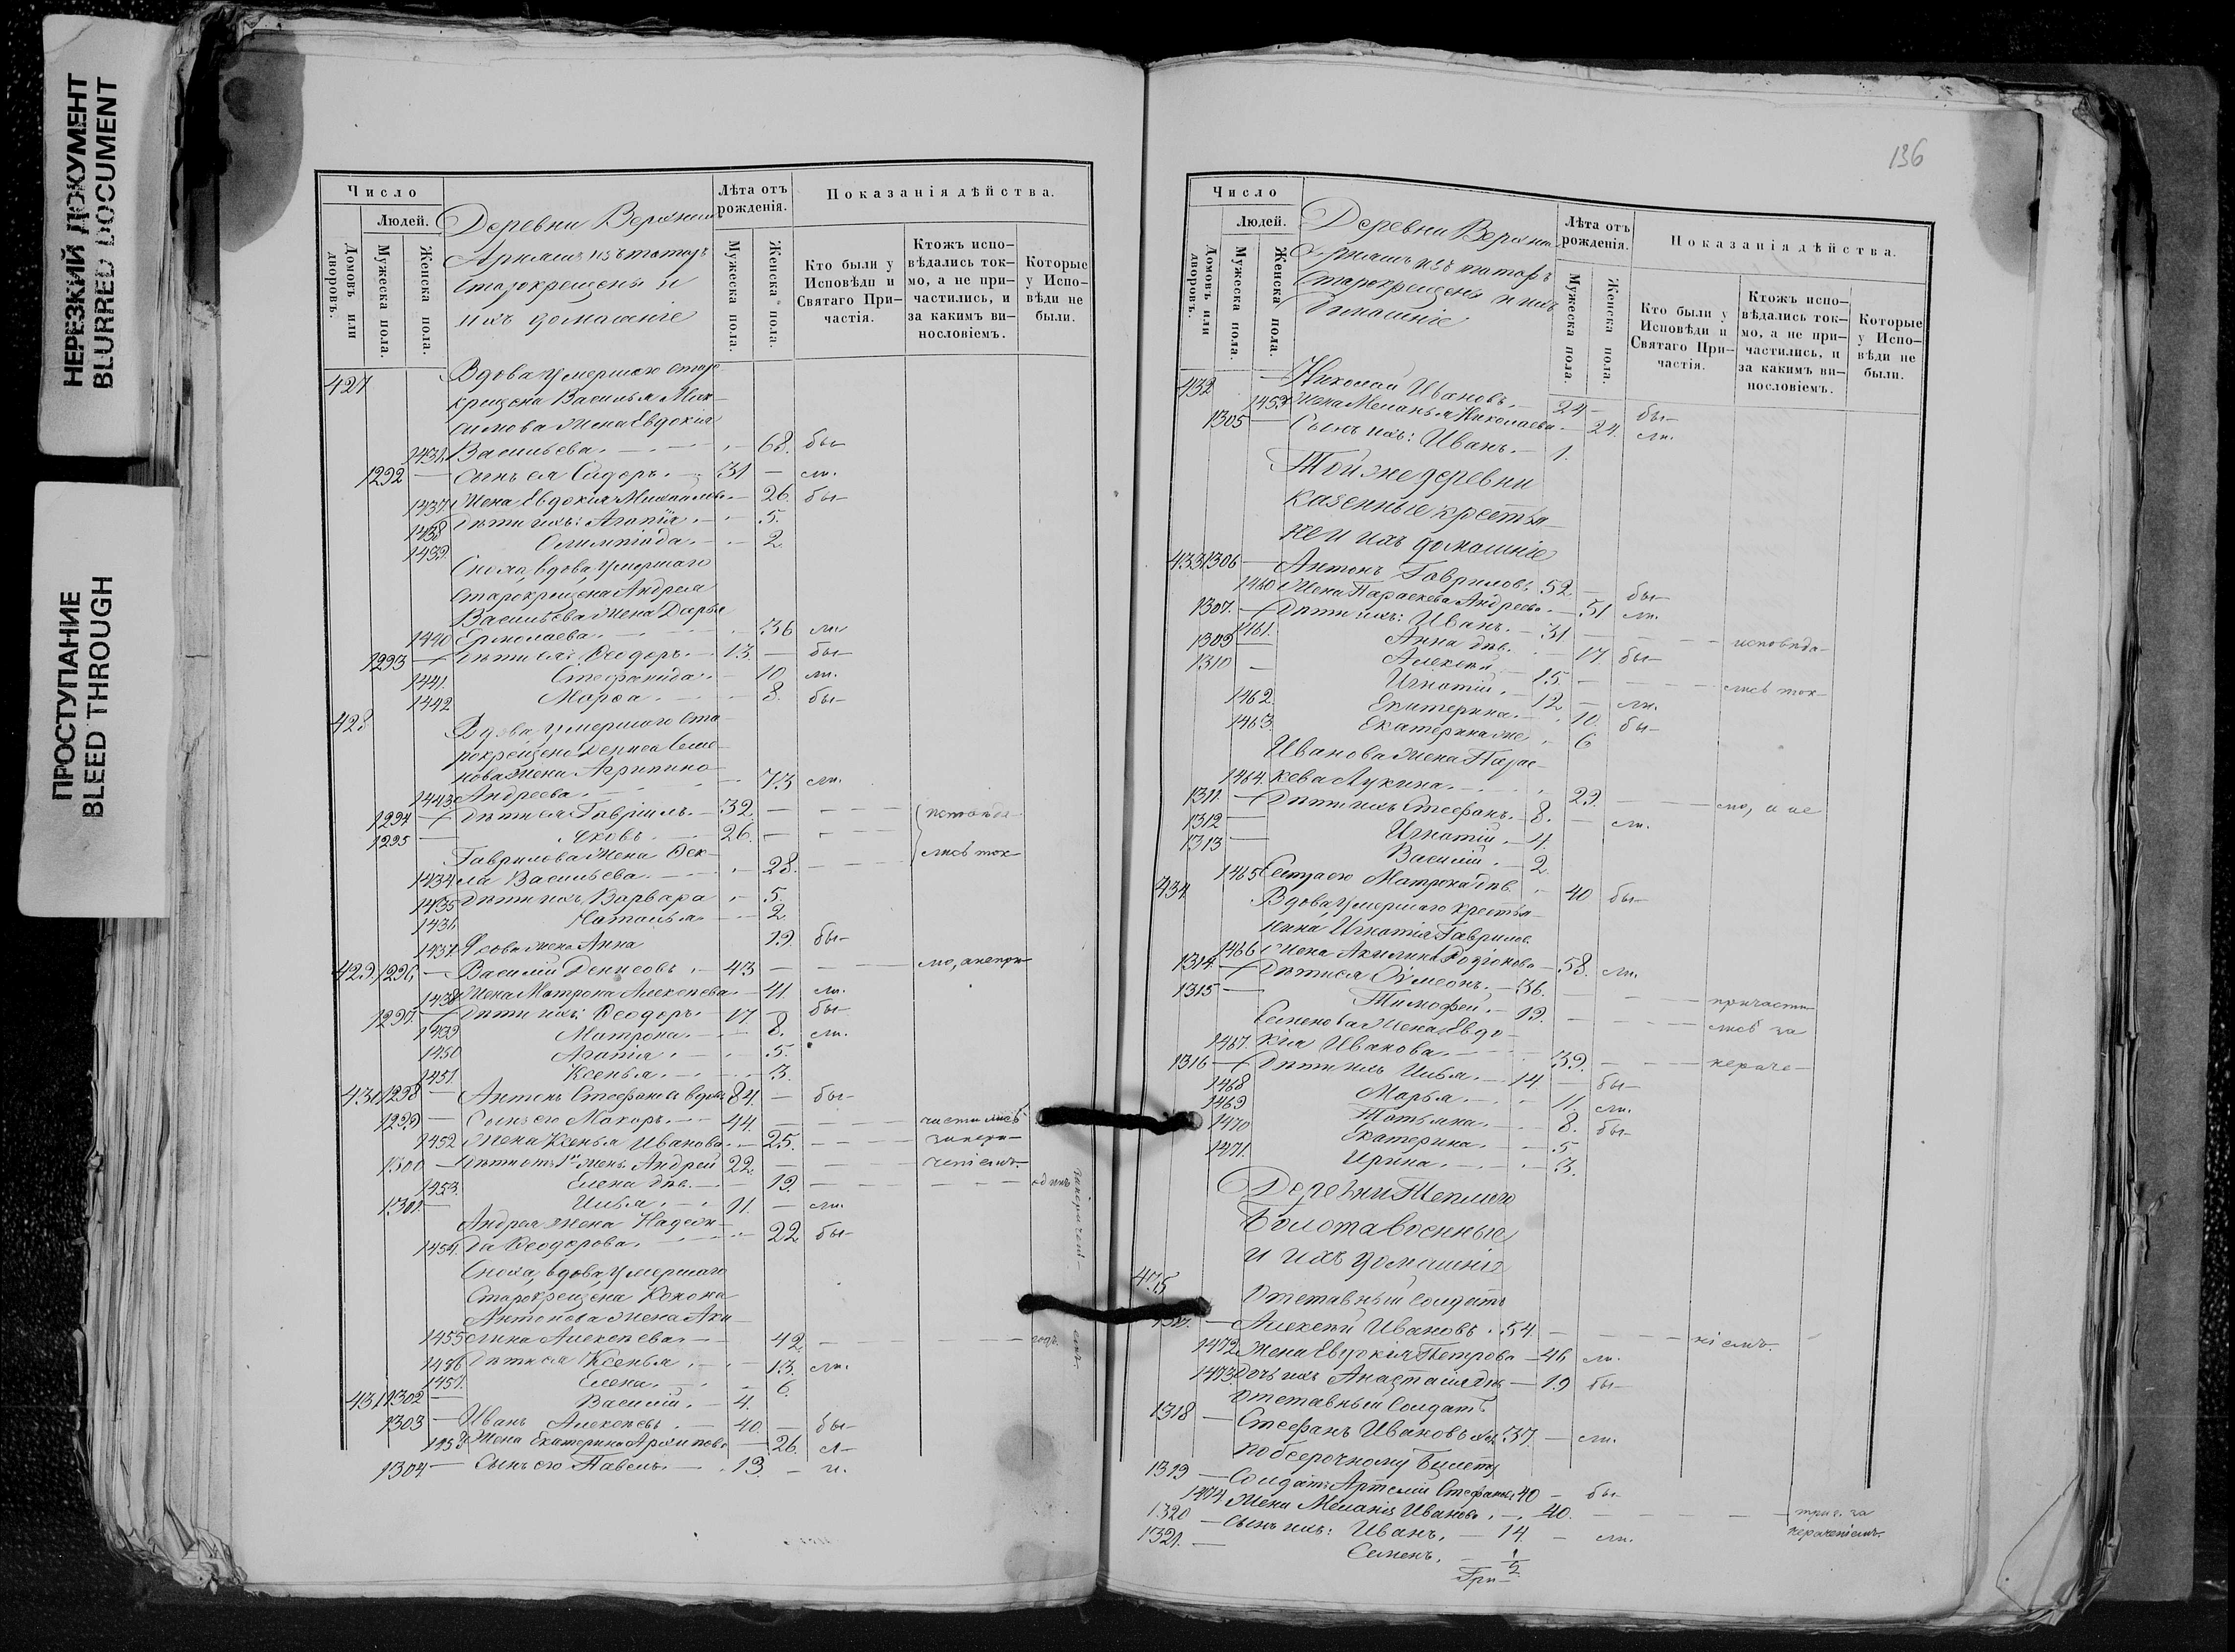 НЕРЕЗКИЙ ДОКУМЕНТ
BLURRED DOCUMENT
ПРОСТУПАНИЕ
BLEED THROUGH
Число
Людей.
Домовъ или дворовъ.
Мужеска пола.
Женска пола.
Деревни Верхний
Арняшъ изъ татаръ
Старокрещены и
ихъ домашніе
Лѣта отъ рожденія.
Мужеска пола.
Женска пола.
Показанія дѣйства.
Кто были у Исповѣди и Святаго Причастія.
Ктожъ исповѣдались токмо, а не причастились, и за какимъ винословіемъ.
Которые у Исповѣди не были.
427 Вдова умершаго старо
крещена Василья Мак
симова жена Евдокія
1436 Васильева. 68. бы
1292 Сынъ ея Сидоръ. 31 ли.
1437 Жена Евдокія Михайлова. 26. бы
1438 Дѣти ихъ: Агапія. 5.
1439. Олимпіада. 2
Сноха, вдова, умершаго
старокрещена Андрея
Васильева жена Дарья
1440 Ермолаева. 36 ли
1293 Дѣти ея: Ѳеодоръ. 13. бы
1441. Стефанида. 10. ли.
1442 Марѳа. 8. бы
428 Вдова, умершаго ста
рокрещена Дениса Семе
нова жена Агрипина
1443 Андреева. 73 ли.
1294 Дѣти ея Гавріилъ. 32. исповѣда
1295 Яковъ. 26.
Гаврилова жена Ѳек лисѣ ток
1434 ла Васильева. 28.
1435 Дѣти ихъ Варвара 5.
1436 Наталья 2
1437 Якова жена Анна 19. бы
429. 1296 Василій Денисовъ. 43 мо, а непри
1438 Жена Матрона Алексѣева 41. ли.
1297. Дѣти ихъ: Ѳеодоръ. 17. бы
1439 Матрона. 8. ли.
1450 Агапія. 5.
1451. Ксенья. 3.
430 1298 Антонъ Стефановъ вдовъ 84. бы
1299 Сынъ его Макаръ. 44. частились
1452 Жена Ксенья Иванова. 25. занера
1300 Дѣти отъ 1й жены Андрей 22. ченіемъ.
1453. Елена дѣв. 19. одинъ
1301. Илья. 11. ли.
Андрея жена Надеж
1454 да Ѳеодорова. 22 бы
Сноха, вдова, умершаго
Старокрещена Конона
Антонова жена Аку
1455 лина Алексѣева 42 годъ.
1456 Дѣти ея Ксенья. 13. ли.
1457. Елена. 6.
431 1302 Василій. 4.
1303 Иванъ Алексѣевъ. 40. бы
1458 Жена Екатерина Архипова 26. л
1304 Сынъ его Павелъ. 13. и.
136
Число
Людей.
Домовъ или дворовъ.
Мужеска пола.
Женска пола.
Деревни Верхній
Арняшъ изъ татаръ
Старокрещены и ихъ
домашніе
Лѣта отъ рожденія.
Мужеска пола.
Женска пола.
Показанія дѣйства.
Кто были у Исповѣди и Святаго Причастія.
Ктожъ исповѣдались токмо, а не причастились, и за какимъ винословіемъ.
Которые у Исповѣди не были.
432 Николай Ивановъ. 24 бы
1459 Жена Меланья Николаева 24. ли.
1305 Сынъ ихъ: Иванъ. 1.
Той же деревни
казенные крестья
не и ихъ домашніе
433 1306 Антонъ Гавриловъ 52 бы
1460 Жена Параскева Андреева 51 ли.
1307. Дѣти ихъ: Иванъ. 31 исповѣда
1461. Анна дѣв. 17. бы
1309 Алексѣй 15. лисѣ ток
1310 Игнатій. 12 ли.
1462. Екатерина. 10. бы
1463. Екатерина же 6
Иванова жена Парас
1464. кева Лукина. 29. мо, и не
1311. Дѣти ихъ Стефанъ. 8. ли.
1312 Игнатій. 4.
1313 Василій. 2.
1465 Сестра его Матрона дѣв. 40 бы
434 Вдова умершаго крестья
нина Игнатія Гаврилов.
1466 Жена Акилина Родіонова 58. ли.
1314. Дѣти ея Сѵмеонъ. 36. причасти
1315 Тимофей. 19. лисѣ за
Семенова жена Евдо
1467. кія Иванова. 39. нераче
1316 Дѣти ихъ Илья. 14. бы
1468 Марья. 11. ли.
1469 Татьяна. 8. бы
1470 Екатерина. 5
1471. Ирина. 3.
Деревни Теплаго
Болота военные
и ихъ домашніе
435 Отставный солдатъ
1317. Алексѣй Ивановъ. 54. ніемъ.
1472 Жена Евдокія Петрова 46 ли.
1473 Дочь ихъ Анастасія дѣв 19 бы
отставный солдатъ
1318 Стефанъ Ивановъ хол. 37. ли.
по безсрочному билету
1319 Солдатъ Артемій Стефановъ 40 бы
1474 Жена Меланія Иванова. 40. за
нераченіемъ.
1320 Сынъ ихъ: Иванъ. 14. ли.
1321. Семенъ. 1/2
Гри